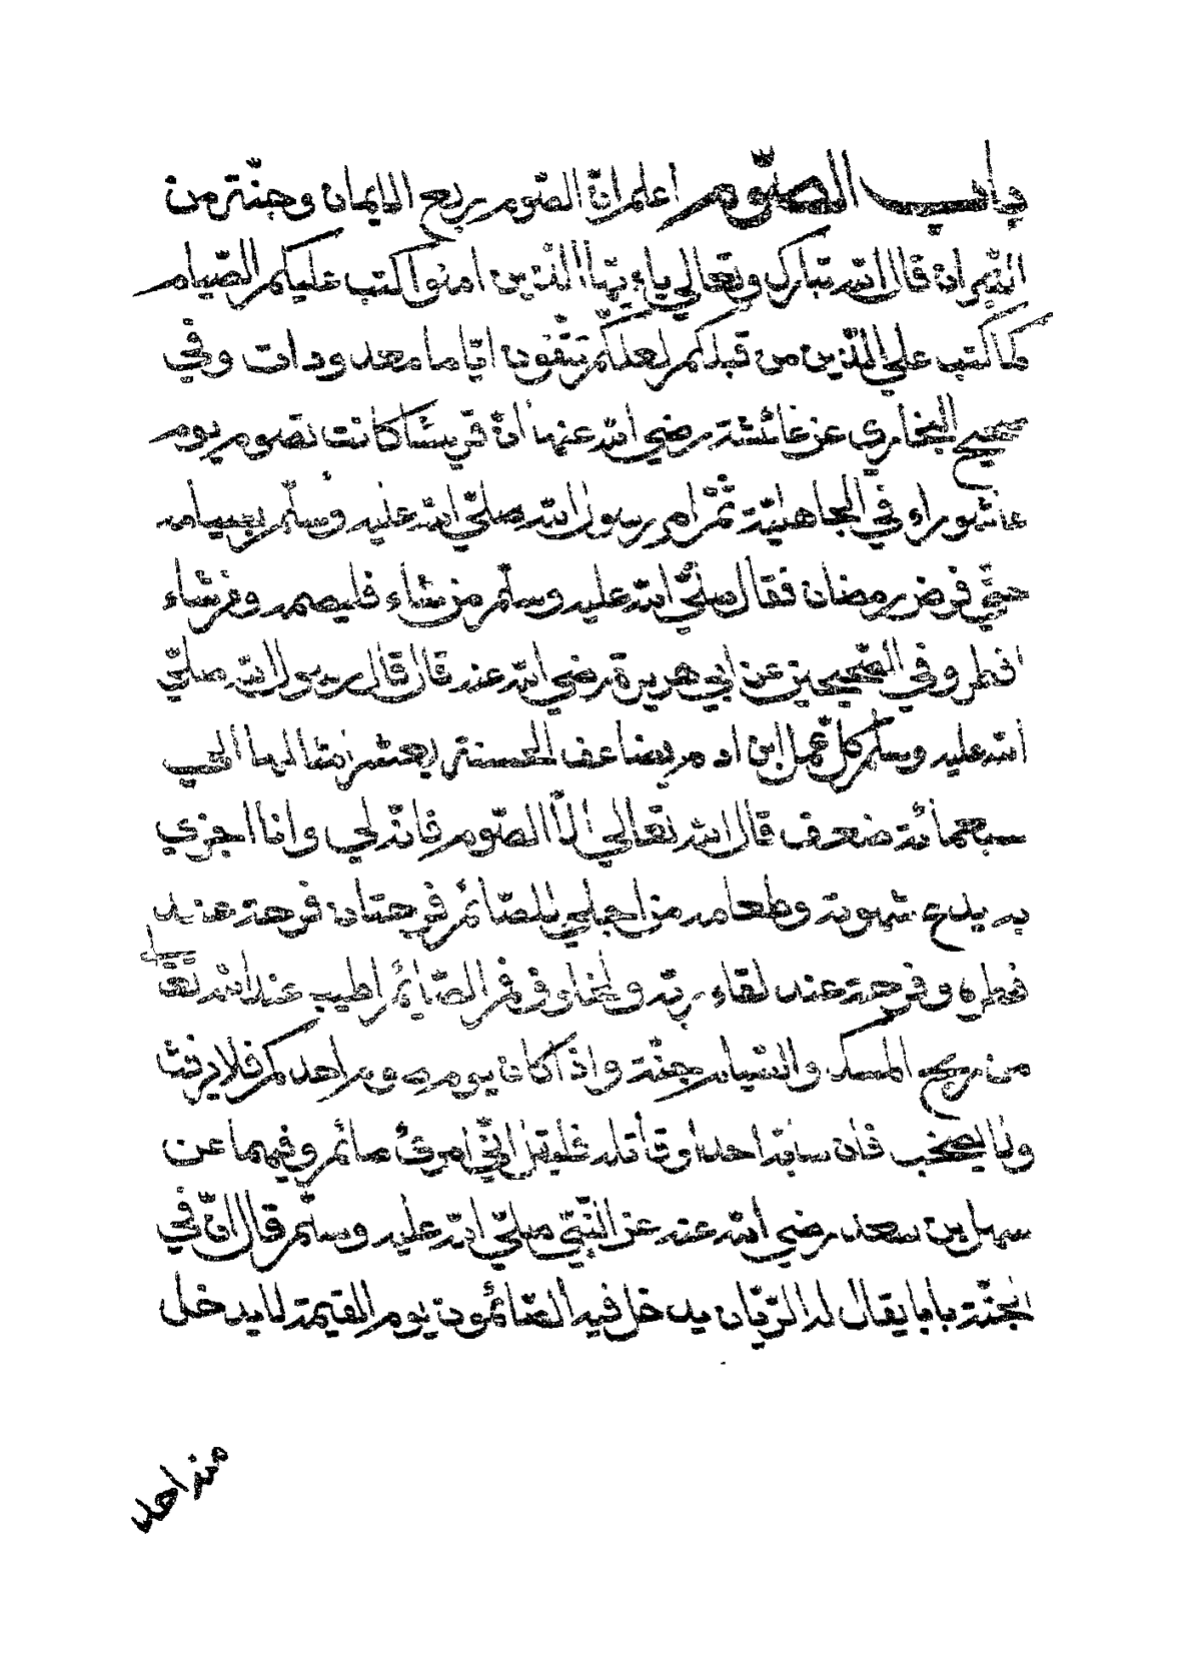 باب الصّوم اعلم انّ الصّوم ربع الايمان وجنّة من
النيران قال الله تبارك وتعالي ياءيّها الذين امنوا كتب عليكم الصّيام
كما كتب علي الذّين من قبلكم لعلّكم تتّقون ايّاما معدودات وفي
صحيح البخاري عن عائشة رضي الله عنها انّ قريشا كانت تصوم يوم
عاشوراء في الجاهليّة ثمّ امر رسول الله صلّي الله عليه وسلّم بصيامه
حتّي فرض رمضان فقال صلّي الله عليه وسلّم من شاء فليصمه ومن شاء
افطر وفي الصّحيحين عن ابي هريرة رضي الله عنه قال قال رسول الله صلّي
الله عليه وسلّم كلّ عمل ابن ادم يضاعف الحسنة بعشر امثالها الي
سبعمائة ضعف قال الله تعالي الّا الصّوم فانّه لي وانا اجزي
به يدع شهوته وطعامه من اجلي للصّائم فرحتان فرحة عند
فطره وفرحة عند لقاء ربّه ولخلوف فم الصّائم اطيب عند الله تعالي
من ريح المسك والصّيام جنّة واذا كان يوم صوم احدكم فلا يرفث
ولا يصخب فان سابّه احد او قاتله فليقل انّي امرئ صائم وفيهما عن
سهل بن سعد رضي الله عنه عن النّبيّ صلّي الله عليه وسلّم قال انّ في
الجنّة بابا يقال له الريّان يدخل فيه الصّائمون يوم القيمة لا يدخل
منه احد